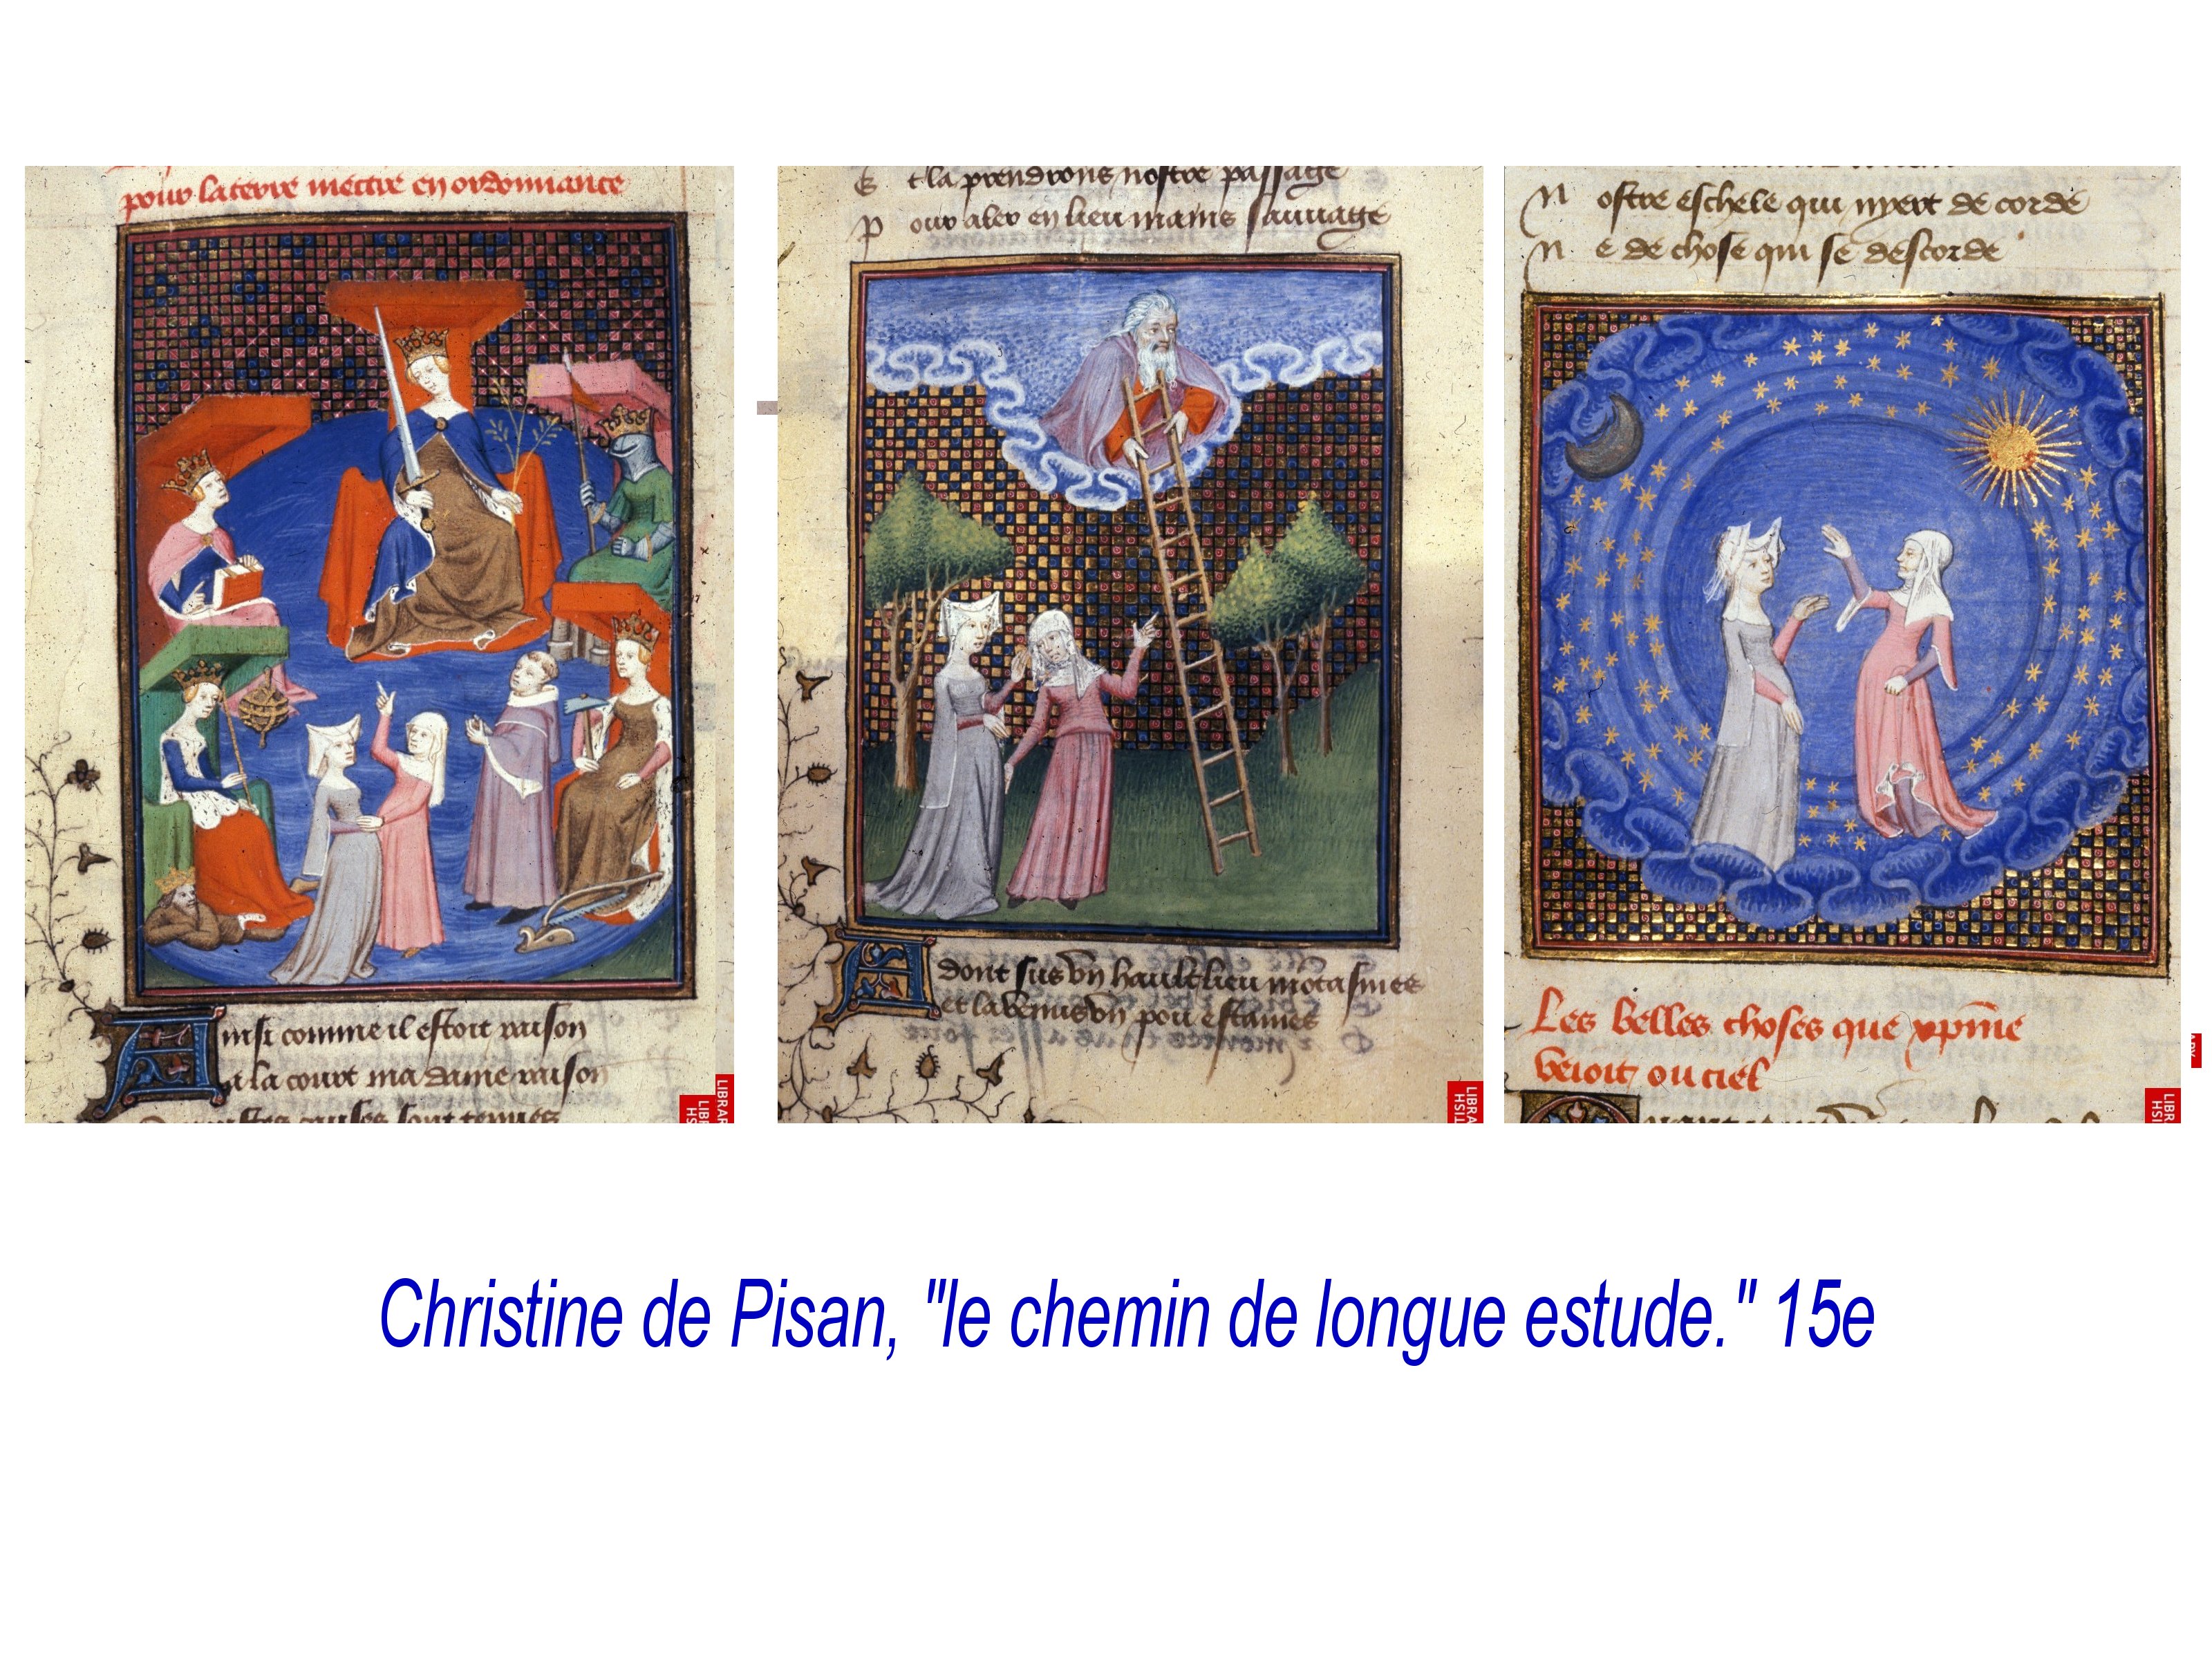 pour la terre mectre en ordonnance
Ainsi comme il estoit raison
a la court ma dame raison
Et la prendrons nostre passage
Pour aler en lieu mains sauuage
Adont sus vn hault lieu motasmes
et la venus vn pou estames
Nostre eschele qui nyert de corde
Ne de chose qui se descorde
Les belles choses que xpine
veioit ou ciel
LIBRAR
LIBR
HS
LIBRA
HSIT
LIBR
HSI
Christine de Pisan, "le chemin de longue estude." 15e